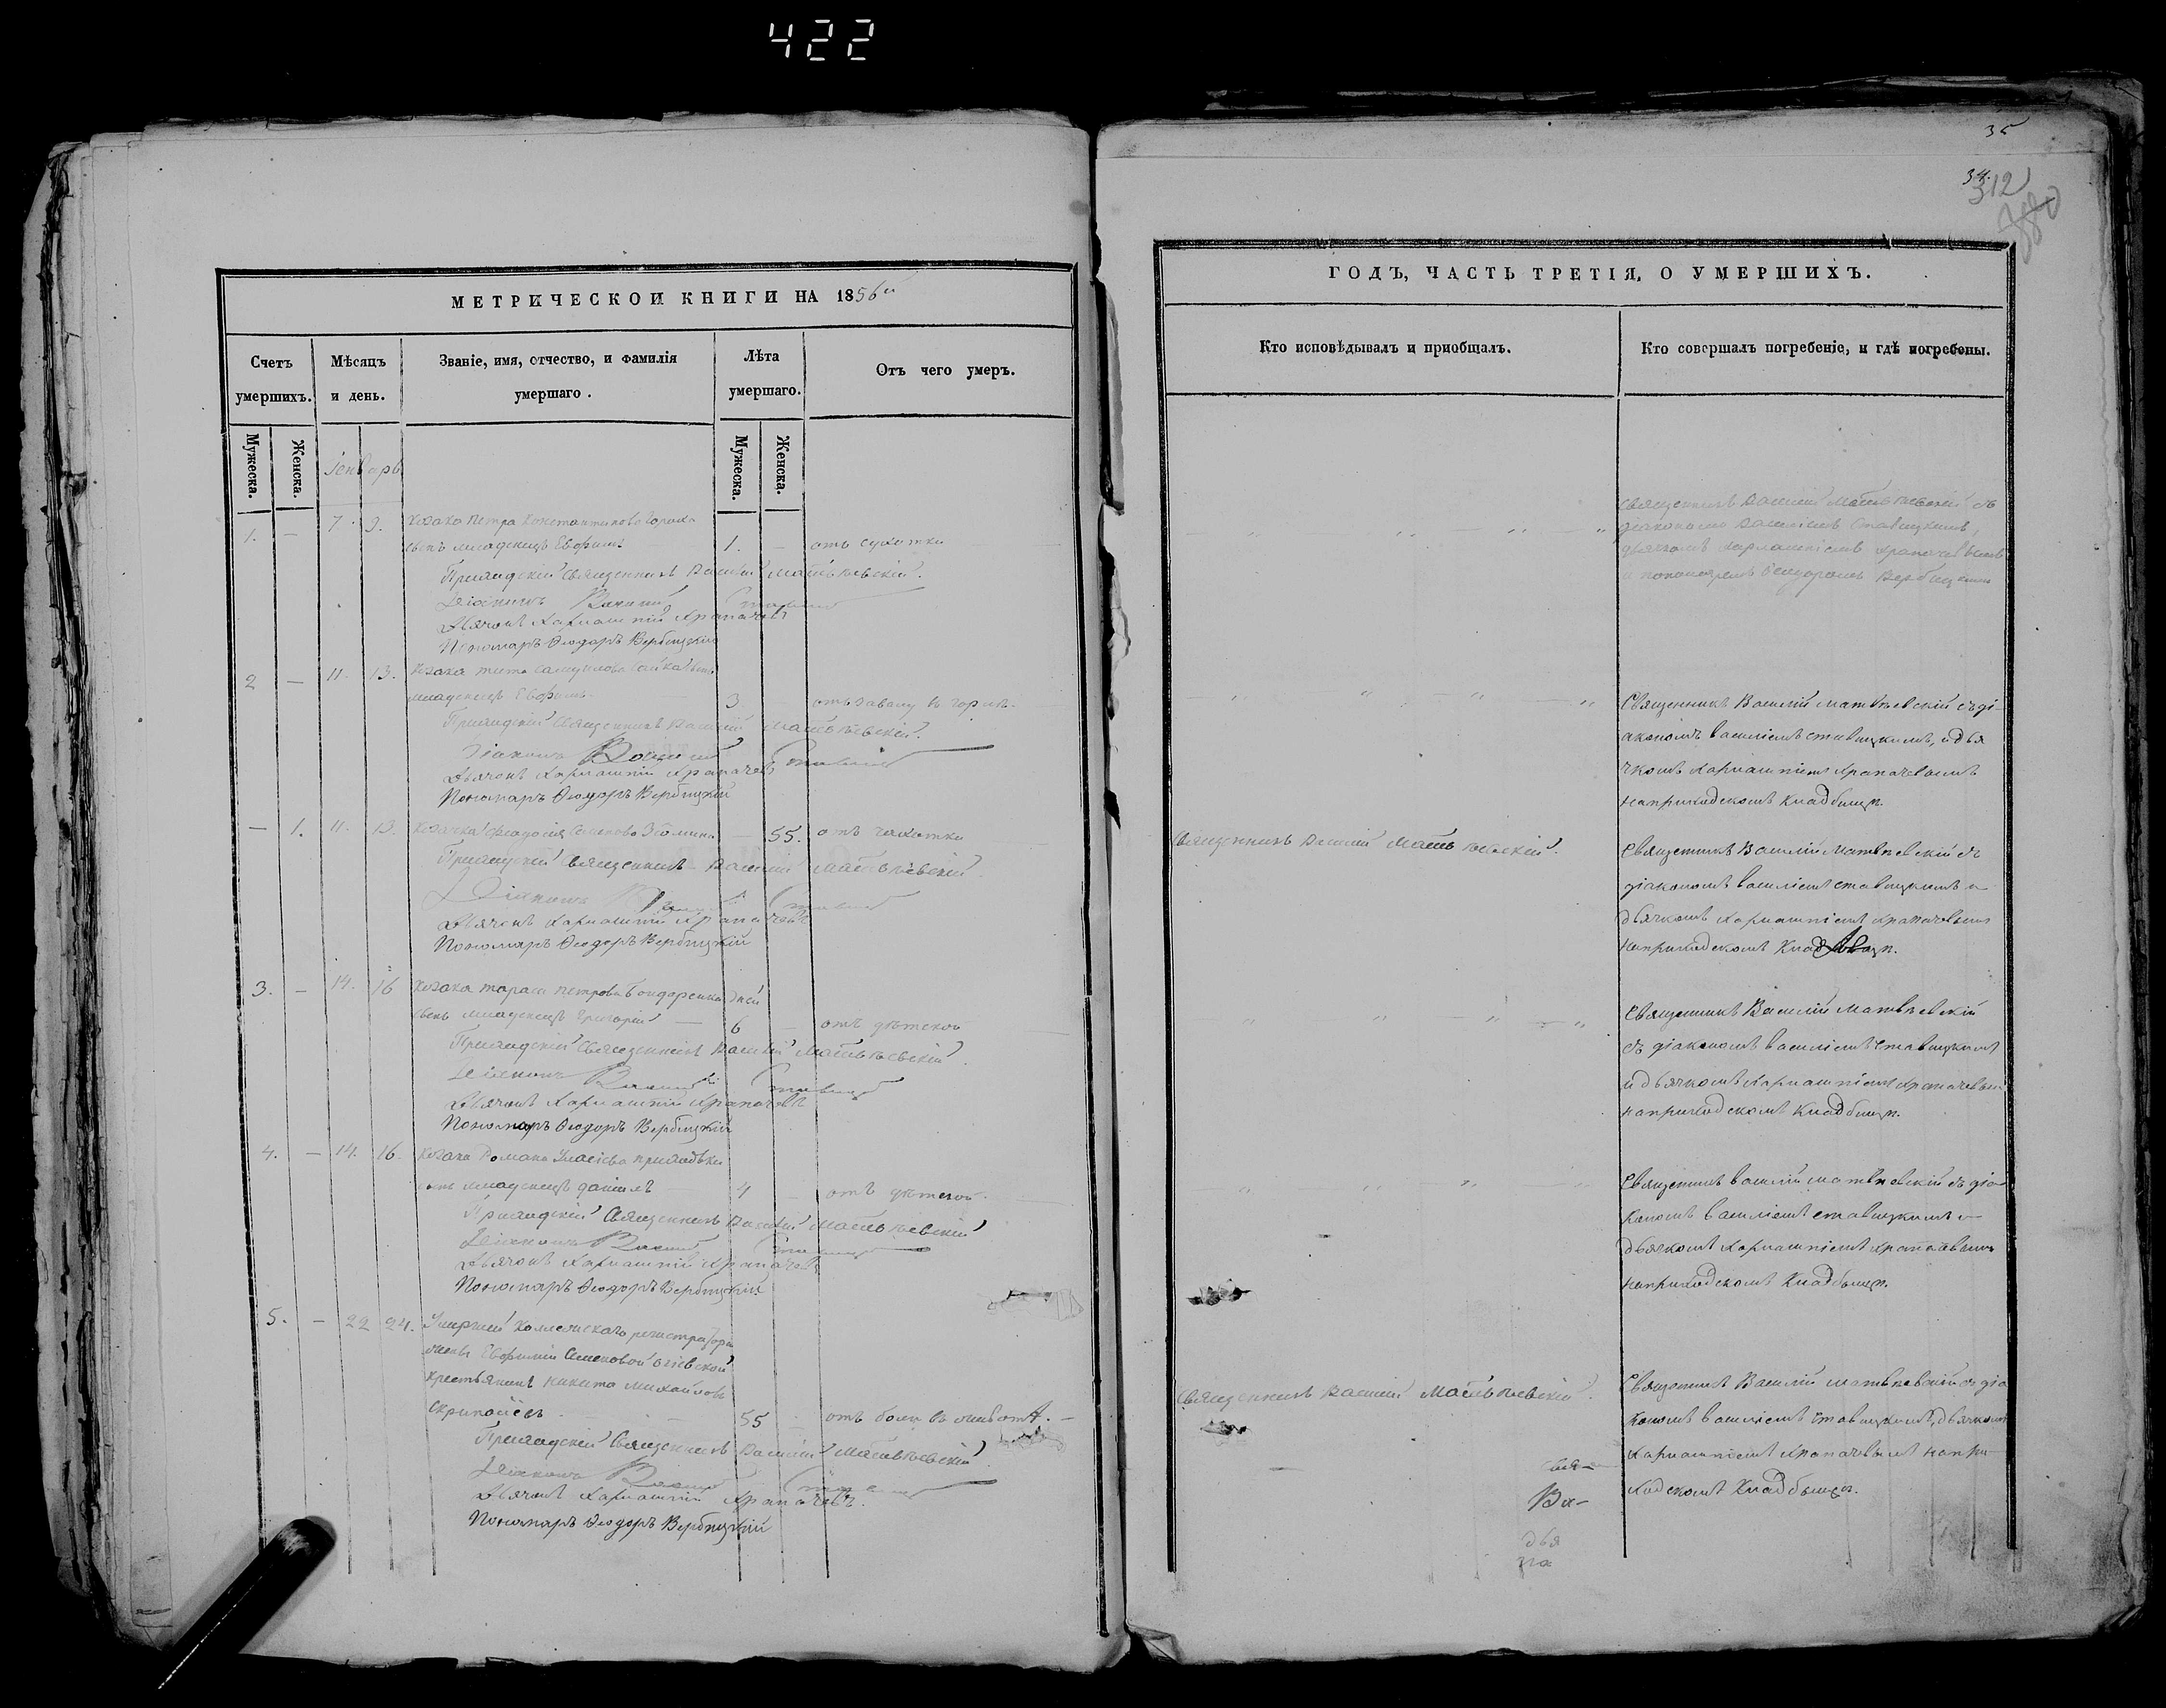 422
35
34.
312
380
МЕТРИЧЕСКОЙ КНИГИ НА 1856й
Счетъ умершихъ.
Мужеска.
Женска.
Мѣсяцъ и день.
Званіе, имя, отчество, и фамилія умершаго.
Лѣта умершаго.
Мужеска.
Женска.
Отъ чего умеръ.
Іенварь
1. — 7. 9. Козака Петра Константинова
сынъ младенецъ Евфимъ 1. — отъ сухотки
Приходскій Священникъ Василій Матвѣевскій.
Діаконъ Василій Ставицкій
Дьячокъ Харлампій Храпачевъ
Пономарь Ѳеодоръ Вербицкій
2 — 11. 13. Козака Тита Самуилова сынъ
младенецъ Евфимъ 3. отъ завалу въ горлѣ.
Приходскій Священникъ Василій Матвѣевскій.
Діаконъ Василій Ставицкій
Дьячокъ Харлампій Храпачевъ
Пономарь Ѳеодоръ Вербицкій
— 1. 11. 13. Козачка Феодосія Семенова — 55. отъ чахотки
Приходскій Священникъ Василій Матвѣевскій.
Діаконъ Василій Ставицкій
Дьячокъ Харлампій Храпачевъ
Пономарь Ѳеодоръ Вербицкій
3. — 14. 16 Козака Тараса Петрова Бондаренка дней
сынъ младенецъ Григорій — 6 — отъ дѣтской
Приходскій Священникъ Василій Матвѣевскій
Діаконъ Василій Ставицкій
Дьячокъ Харлампій Храпачевъ
Пономарь Ѳеодоръ Вербицкій
4. — 14. 16. Козака Романа Власіева
сынъ младенецъ Даніилъ 4 — отъ дѣтской.
Приходскій Священникъ Василій Матвѣевскій
Діаконъ Василій Ставицкій
Дьячокъ Харлампій Храпачевъ
Пономарь Ѳеодоръ Вербицкій
5. — 22 24. Умершей Коллежскаго регистратора
жены Евфиміи Семеновой
крестьянинъ Никита Михайловъ
55 отъ боли въ животѣ. —
Приходскій Священникъ Василій Матвѣевскій
Діаконъ Василій Ставицкій
Дьячокъ Харлампій Храпачевъ.
Пономарь Ѳеодоръ Вербицкій
ГОДЪ, ЧАСТЬ ТРЕТІЯ, О УМЕРШИХЪ.
Кто исповѣдывалъ и приобщалъ.
Кто совершалъ погребеніе, и гдѣ погребены.
Священникъ Василій Матвѣевскій съ
діакономъ Василіемъ Ставицкимъ,
дьячкомъ Харлампіемъ Храпачевымъ
и пономаремъ Ѳеодоромъ Вербицкимъ
Священникъ Василій Матвѣевскій съ ді-
акономъ Василіемъ Ставицкимъ, и дья
чкомъ Харлампіемъ Храпачевымъ
на приходскомъ Кладбищѣ.
Священникъ Василій Матвѣевскій.
Священникъ Василій Матвѣевскій съ
діакономъ Василіемъ Ставицкимъ и
дьячкомъ Харлампіемъ Храпачевымъ
на приходскомъ Кладбищѣ.
Священникъ Василій Матвѣевскій
съ діакономъ Василіемъ Ставицкимъ
и дьячкомъ Харлампіемъ Храпачевымъ
на приходскомъ Кладбищѣ.
Священникъ Василій Матвѣевскій съ діа
кономъ Василіемъ Ставицкимъ и
дьячкомъ Харлампіемъ Храпачевымъ
на приходскомъ Кладбищѣ.
Священникъ Василій Матвѣевскій.
Священникъ Василій Матвѣевскій съ діа
кономъ Василіемъ Ставицкимъ, дьячкомъ
Харлампіемъ Храпачевымъ на при
ходскомъ Кладбищѣ.
Ва-
дья
на